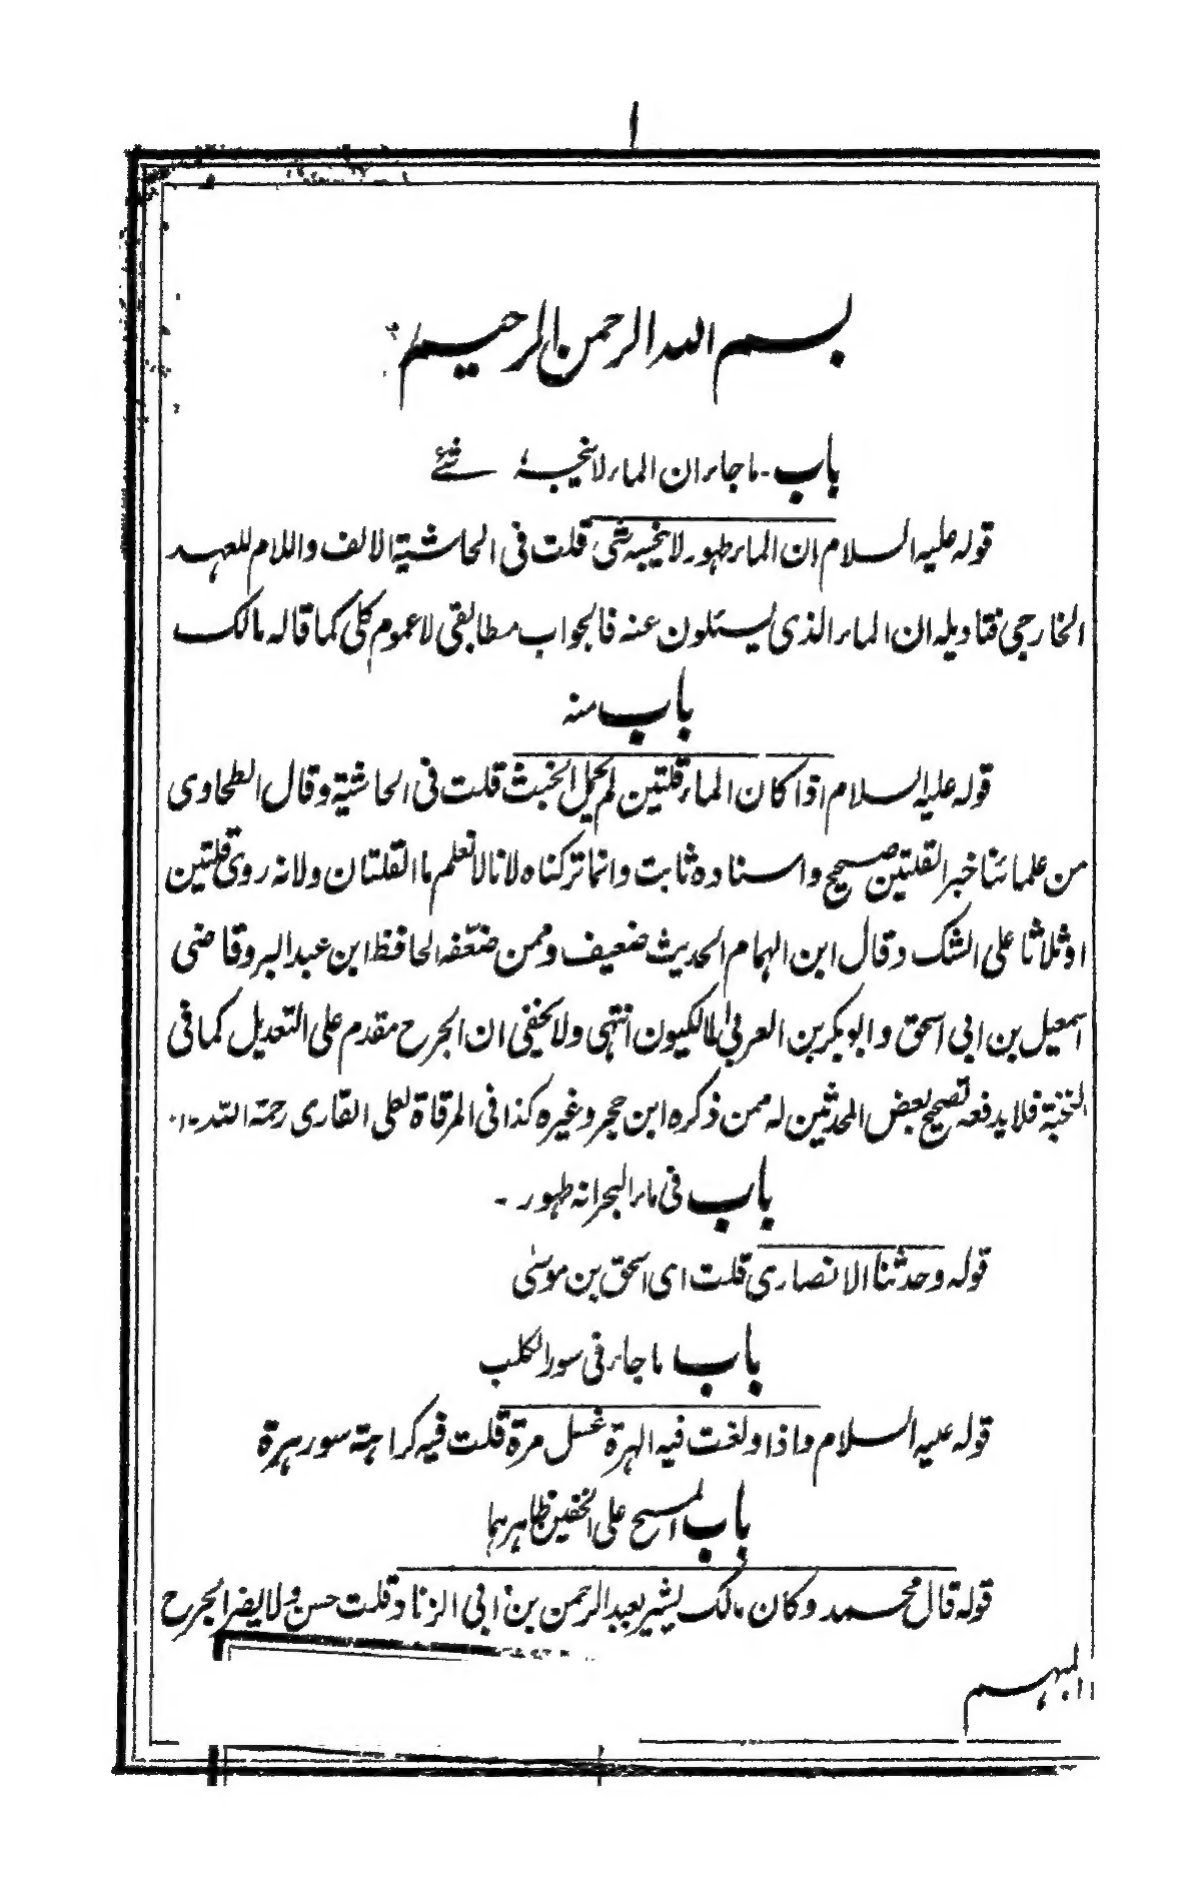 ا
بسم اللہ الرحمن الرحیم
باب - ما جاء ان الماء لا ینجسہ شئے
قولہ علیہ السلام ان الماء طہور لا ینجسہ شی قلت فی الحاشیۃ الالف واللام للعہد
الخارجی فتاویلہ ان الماء الذی یسئلون عنہ فالجواب مطابقی لا عموم کلی کما قالہ مالک
باب منہ
قولہ علیہ السلام اذا کان الماء قلتین لم یحمل الخبث قلت فی الحاشیۃ وقال الطحاوی
من علمائنا خبر القلتین صحیح واسنادہ ثابت وانما ترکناہ لانا لا نعلم ما القلتان ولانہ روی قلتین
او ثلاثا علی الشک وقال ابن الہمام الحدیث ضعیف وممن ضعّفہ الحافظ ابن عبد البر وقاضی
اسمعیل بن ابی اسحق وابوبکر بن العربی المالکیون انتہی ولا یخفی ان الجرح مقدم علی التعدیل کما فی
النخبۃ فلا یدفعہ تصحیح بعض المحدثین لہ ممن ذکرہ ابن حجر وغیرہ کذا فی المرقاۃ لعلی القاری رحمۃ اللہ -
باب فی ماء البحر انہ طہور -
قولہ وحدثنا الانصاری قلت ای اسحق بن موسیٰ
باب ما جاء فی سور الکلب
قولہ علیہ السلام واذا ولغت فیہ الہرۃ غسل مرۃ قلت فیہ کراہتہ سور ہرۃ
باب المسح علی الخفین ظاہرہما
قولہ قال محمد وکان مالک یشیر بعبد الرحمن بن ابی الزناد قلت حسن ولا یضر الجرح
المبہم